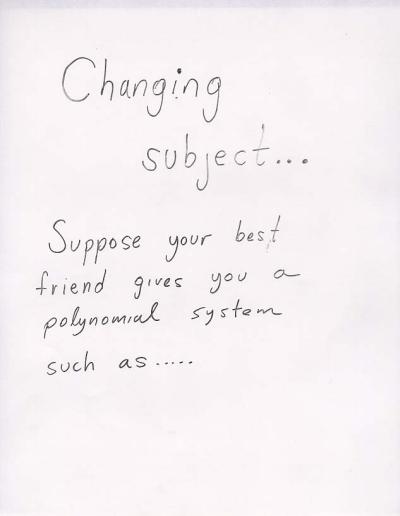 Changing
subject...
Suppose your best
friend gives you a
polynomial system
such as.....